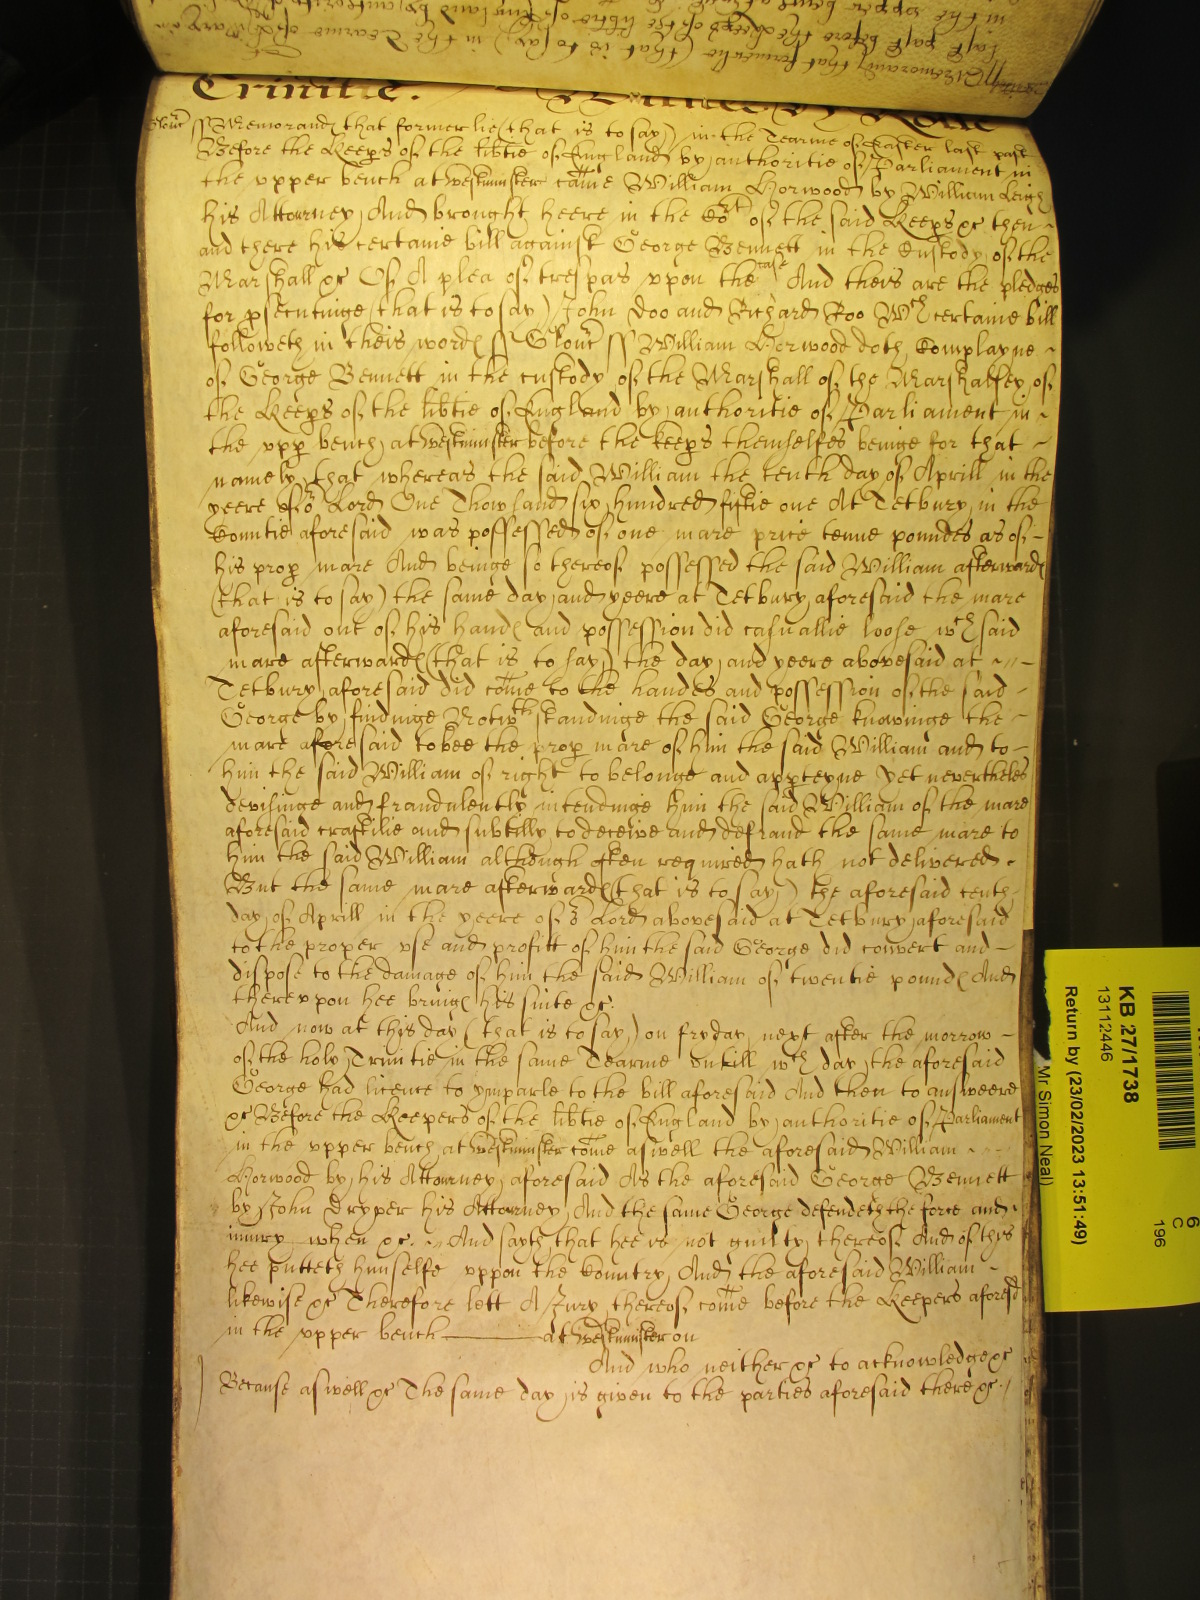 Trinitie.
Glouc ss Memorand that formerlie (that is to say) in the Tearme of Easter last past
Before the Keeps of the libtie of England by authoritie of Parliament in
the upper bench at Westminster came William Horwood by William Leigh
his Attorney And brought heere in the Cort of the said Keeps &c then
and there his certaine bill against George Bennett in the Custody of the
Marshall &c Of A plea of trespas upon the case And theis are the pledges
for psecutinge (that is to say) John Doo and Richard Roo Wch certaine bill
followeth in theis word ss Glouc ss William Horwood doth Complayne
of George Bennett in the custody of the Marshall of the Marshalsey of
the Keeps of the libtie of England by authoritie of Parliament in
the upp bench at Westminster before the keeps themselfes beinge for that
namely that whereas the said William the tenth day of Aprill in the
yeere of or Lord One Thowsand six hundred fiftie one At Tetbury in the
Countie aforesaid was possessed of one mare price tenne poundes as of
his prop mare And beinge so thereof possessed the said William afterward
(that is to say) the same day and yeere at Tetbury aforesaid the mare
aforesaid out of his hand and possession did casuallie loose wch said
mare afterward (that is to say) the day and yeere abovesaid at
Tetbury aforesaid did come to the handes and possession of the said
George by findinge Notwthstandinge the said George knowinge the
mare aforesaid to bee the prop mare of him the said William and to
him the said William of right to belonge and appteyne Yet nevertheles
devisinge and fraudulently intendinge him the said William of the mare
aforesaid craftilie and subtilly to deceive and defraud the same mare to
him the said William although often required hath not delivered
But the same mare afterward (that is to say) the aforesaid tenth
day of Aprill in the yeere of or Lord abovesaid at Tetbury aforesaid
to the proper use and profitt of him the said George did convert and
dispose to the damage of him the said William of twentie pound And
thereupon hee bring his suite &c.
And now at this day (that is to say) on fryday next after the morrow
of the holy Trinitie in the same Tearme Untill wch day the aforesaid
George had licence to ymparle to the bill aforesaid And then to answeere
&c Before the Keepers of the libtie of England by authoritie of Parliament
in the upper bench at Westminster come aswell the aforesaid William
Horwood by his Attorney aforesaid As the aforesaid George Bennett
by John Dryper his Attorney And the same George defendeth the force and
iniury when &c. And sayth that hee is not guilty thereof And of this
hee putteth himselfe uppon the Country And the aforesaid William
likewise &c Therefore lett A Jury thereof come before the Keepers aforesd
in the upper bench at Westminster on
And who neither &c to acknowledge &c
Because aswell &c The same day is given to the parties aforesaid there &c.
KB 27/1738
13112446
Return by (23/02/2023 13:51:49)
Mr Simon Neal)
6
C
196